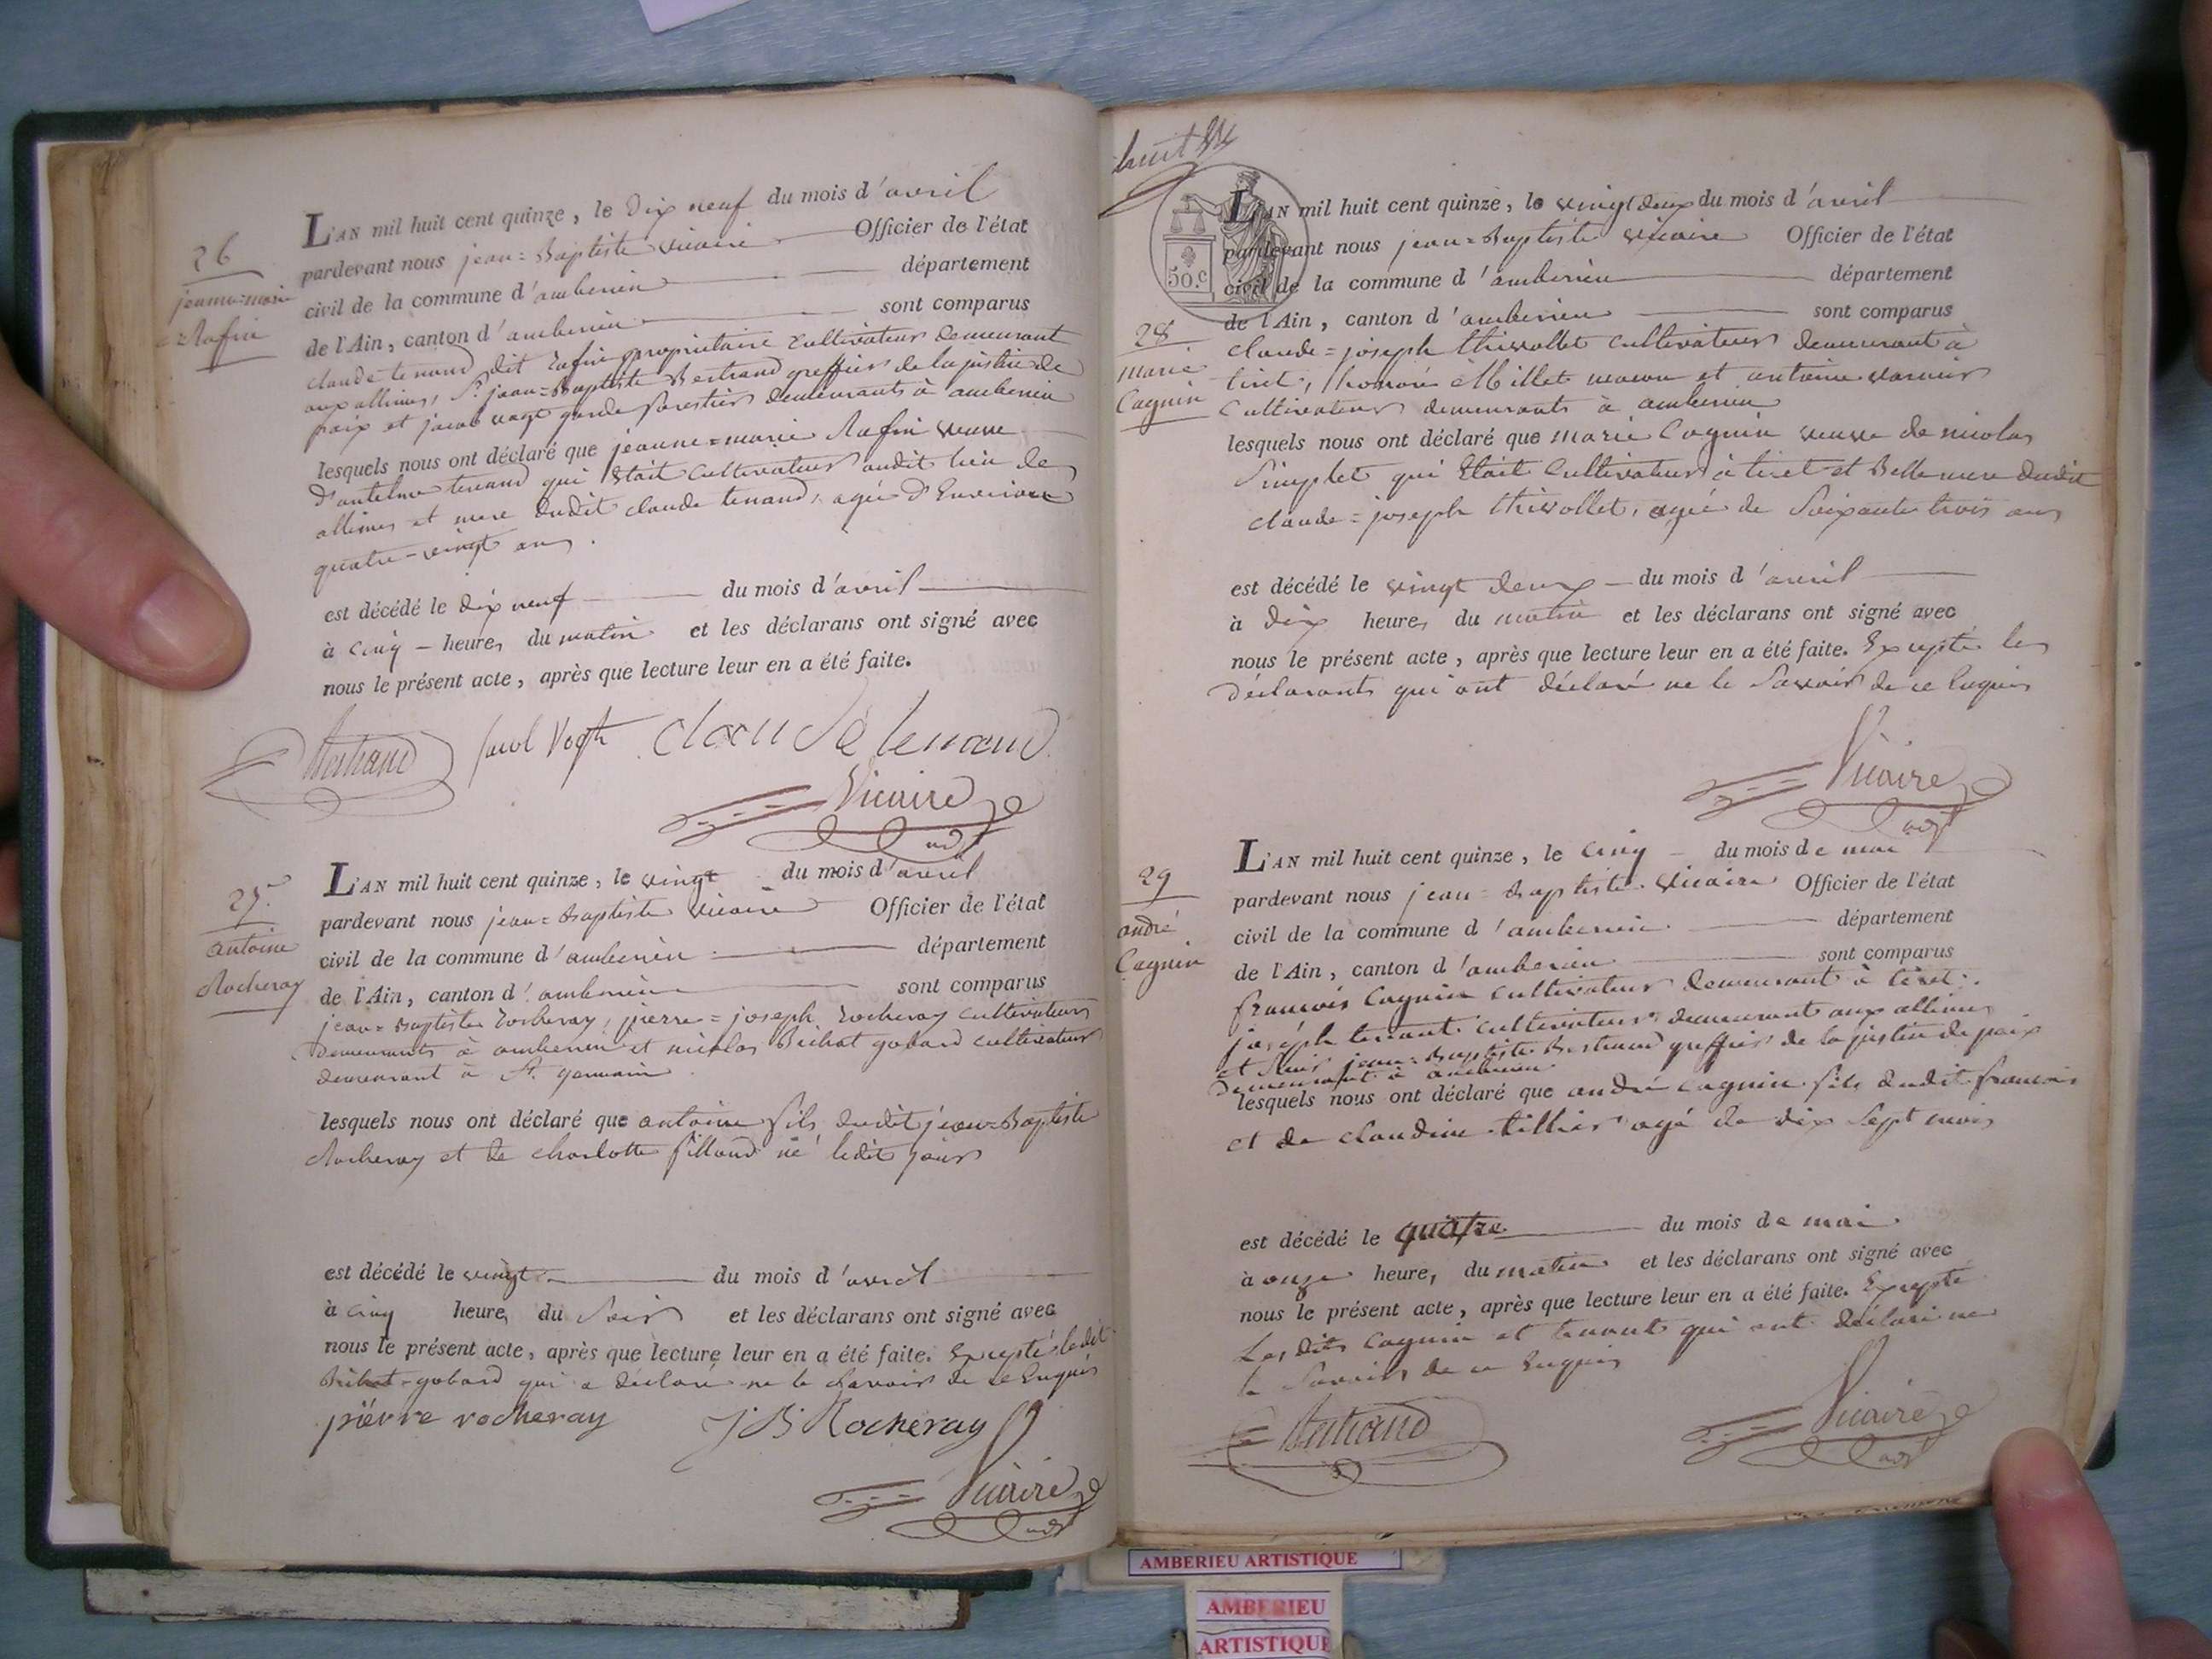 26
jeanne=marie
Rafin
L'AN mil huit cent quinze, le dix neuf du mois d'avril
pardevant nous jean=Baptiste vicaire Officier de l'état
civil de la commune d'amberieu département
de l'Ain, canton d'amberieu sont comparus
claude tenand dit Rafin propriétaire cultivateur demeurant
aux allimes, Sr. jean=Baptiste Bertrand greffier de la justice de
paix et jacob vogt garde forestier demeurants à amberieu
lesquels nous ont déclaré que jeanne=marie Rafin veuve
d'antelme tenand qui était cultivateur audit lieu des
allimes et mere dudit claude tenand, agée d'Environ
quatre-vingt ans.
est décédé le dix neuf du mois d'avril
à cinq heures du matin et les déclarans ont signé avec
nous le présent acte, après que lecture leur en a été faite.
Bertrand Jacob Vogt Claude tenand
Vicaire
adjt
27.
antoine
Rocheray
L'AN mil huit cent quinze, le vingt du mois d'avril
pardevant nous jean=Baptiste vicaire Officier de l'état
civil de la commune d'amberieu département
de l'Ain, canton d'amberieu sont comparus
jean=Baptiste Rocheray, pierre=joseph Rocheray cultivateurs
demeurants à amberieu et nicolas Bichat gobard cultivateur
demeurant à St. germain
lesquels nous ont déclaré que antoine fils dudit jean=Baptiste
Rocheray et de charlotte fillaud né ledit jour
est décédé le vingt du mois d'avril
à cinq heures du soir et les déclarans ont signé avec
nous le présent acte, après que lecture leur en a été faite. Excepté ledit
Bichat=gobard qui a déclaré ne le savoir de ce Enquis
piérre rocheray J B Rocheray
Vicaire
adjt
huit
50.c
28
marie
Cagnin
L'AN mil huit cent quinze, le vingt deux du mois d'avril
pardevant nous jean=Baptiste vicaire Officier de l'état
civil de la commune d'amberieu département
de l'Ain, canton d'amberieu sont comparus
claude=joseph thivollet cultivateur demeurant à
tiret, honoré Millet macon et antoine
cultivateur demeurants à amberieu
lesquels nous ont déclaré que marie Cagnin veuve de nicolas
Simplet qui Etait cultivateur à tiret et Belle mere dudit
claude=joseph thivollet, agée de soixante trois ans
est décédé le vingt deux du mois d'avril
à dix heures du matin et les déclarans ont signé avec
nous le présent acte, après que lecture leur en a été faite. Excepté les
déclarants qui ont déclaré ne le savoir de ce Enquis
Vicaire
adjt
29
andré
Cagnin
L'AN mil huit cent quinze, le cinq du mois de mai
pardevant nous jean=Baptiste vicaire Officier de l'état
civil de la commune d'amberieu département
de l'Ain, canton d'amberieu sont comparus
francois Cagnin cultivateur demeurant à tiret,
joseph tenant cultivateur demeurant aux allimes
et Sieur jean=Baptiste Bertrand greffier de la justice de paix
demeurant à amberieu
lesquels nous ont déclaré que andré cagnin fils dudit francois
et de claudine tillier agé de dix sept mois
est décédé le quatre du mois de mai
à onze heures du matin et les déclarans ont signé avec
nous le présent acte, après que lecture leur en a été faite. Excepté
Les dits cagnin et tenant qui ont déclaré ne
le savoir de ce Enquis
Bertrand Vicaire
adjt
AMBERIEU ARTISTIQUE
AMBERIEU
ARTISTIQUE